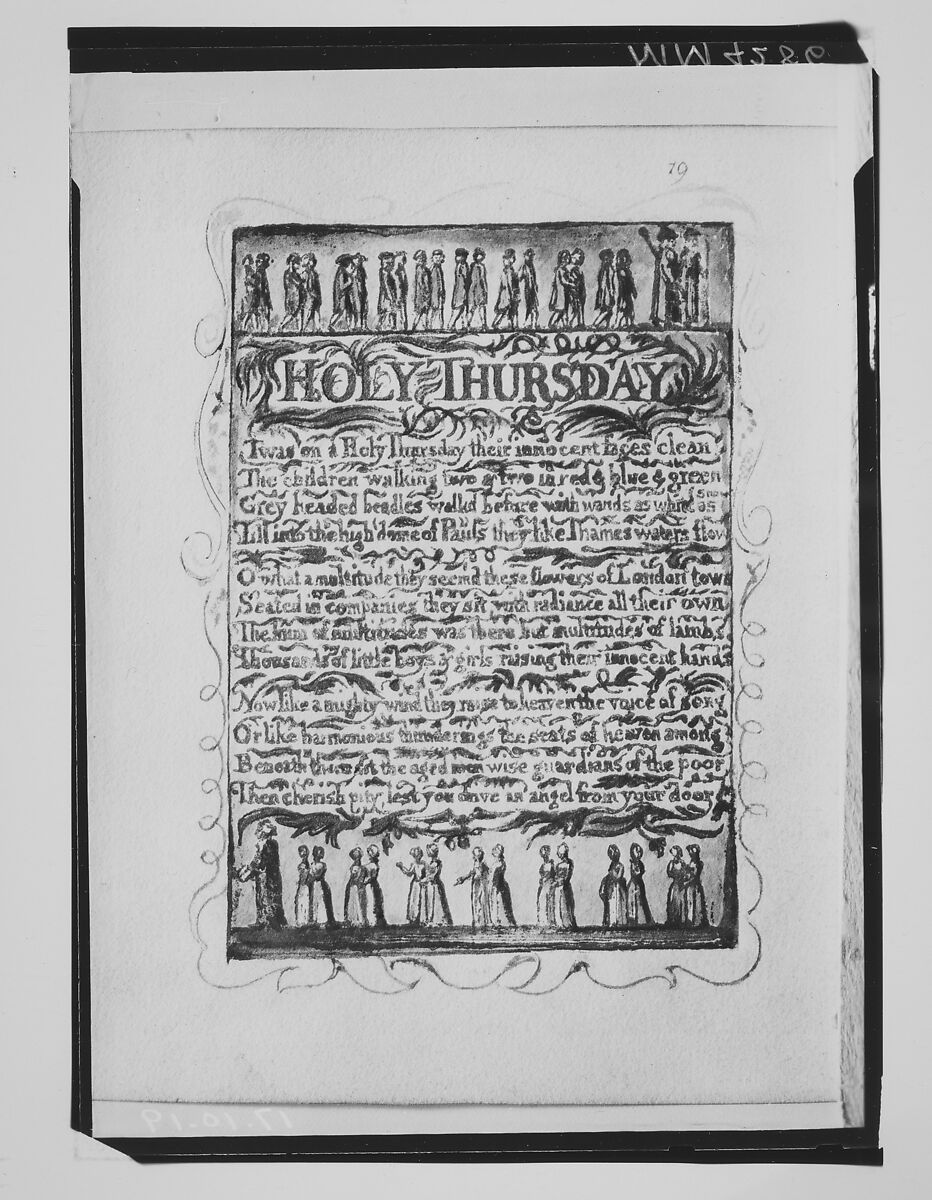 MM 4286
19
HOLY THURSDAY
Twas on a Holy Thursday their innocent faces clean
The children walking two & two in red & blue & green
Grey headed beadles walkd before with wands as white as snow
Till into the high dome of Pauls they like Thames waters flow
O what a multitude they seemd these flowers of London town
Seated in companies they sit with radiance all their own
The hum of multitudes was there but multitudes of lambs
Thousands of little boys & girls raising their innocent hands
Now like a mighty wind they raise to heaven the voice of song
Or like harmonious thunderings the seats of heaven among
Beneath them sit the aged men wise guardians of the poor
Then cherish pity, lest you drive an angel from your door
17.10.19